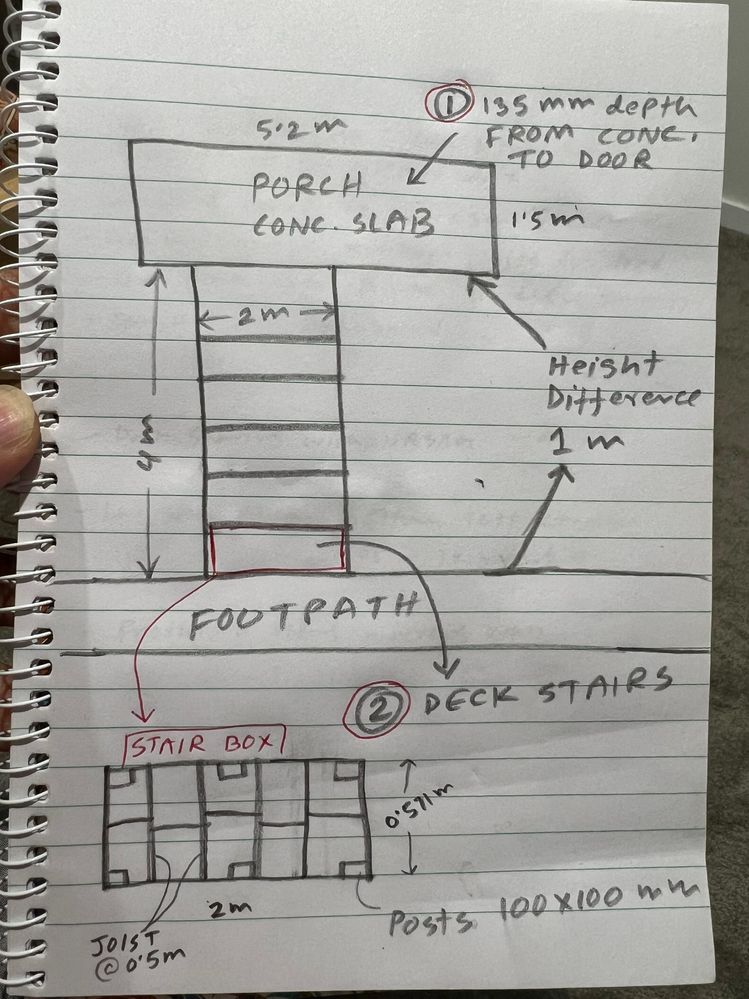 ① 135 mm depth
FROM CONC.
TO DOOR
5.2 m
PORCH
CONC. SLAB
1.5 m
2 m
4 m
Height
Difference
1 m
FOOTPATH
② DECK STAIRS
STAIR BOX
0.571m
2m
Posts 100X100 mm
JOIST
@ 0.5m